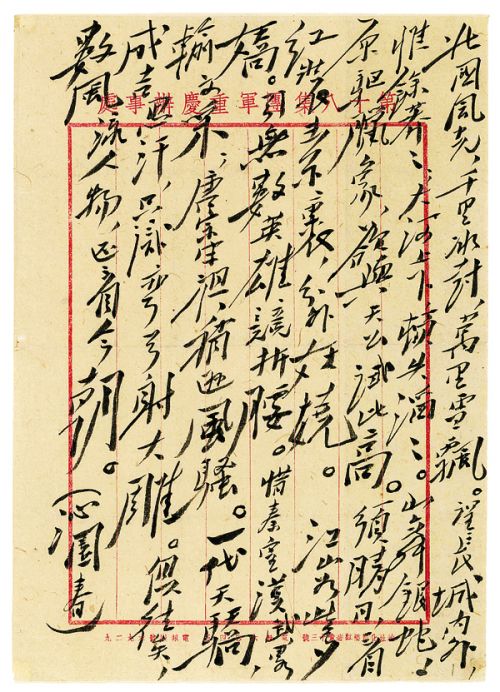 第十八集團軍重慶辦事處
北國風光,千里冰封,萬里雪飄。望長城內外,
惟餘莽々;大河上下,頓失滔々。山舞銀蛇,
原驅臘象,欲與天公試比高。須晴日看
紅裝素裹,分外妖嬈。 江山如此多
嬌。引無數英雄競折腰。惜秦皇漢武略
輸文采;唐宗宋祖,稍遜風騷。一代天驕,
成吉思汗,只識彎弓射大雕。俱往矣,
數風流人物,还看今朝。(沁園春)